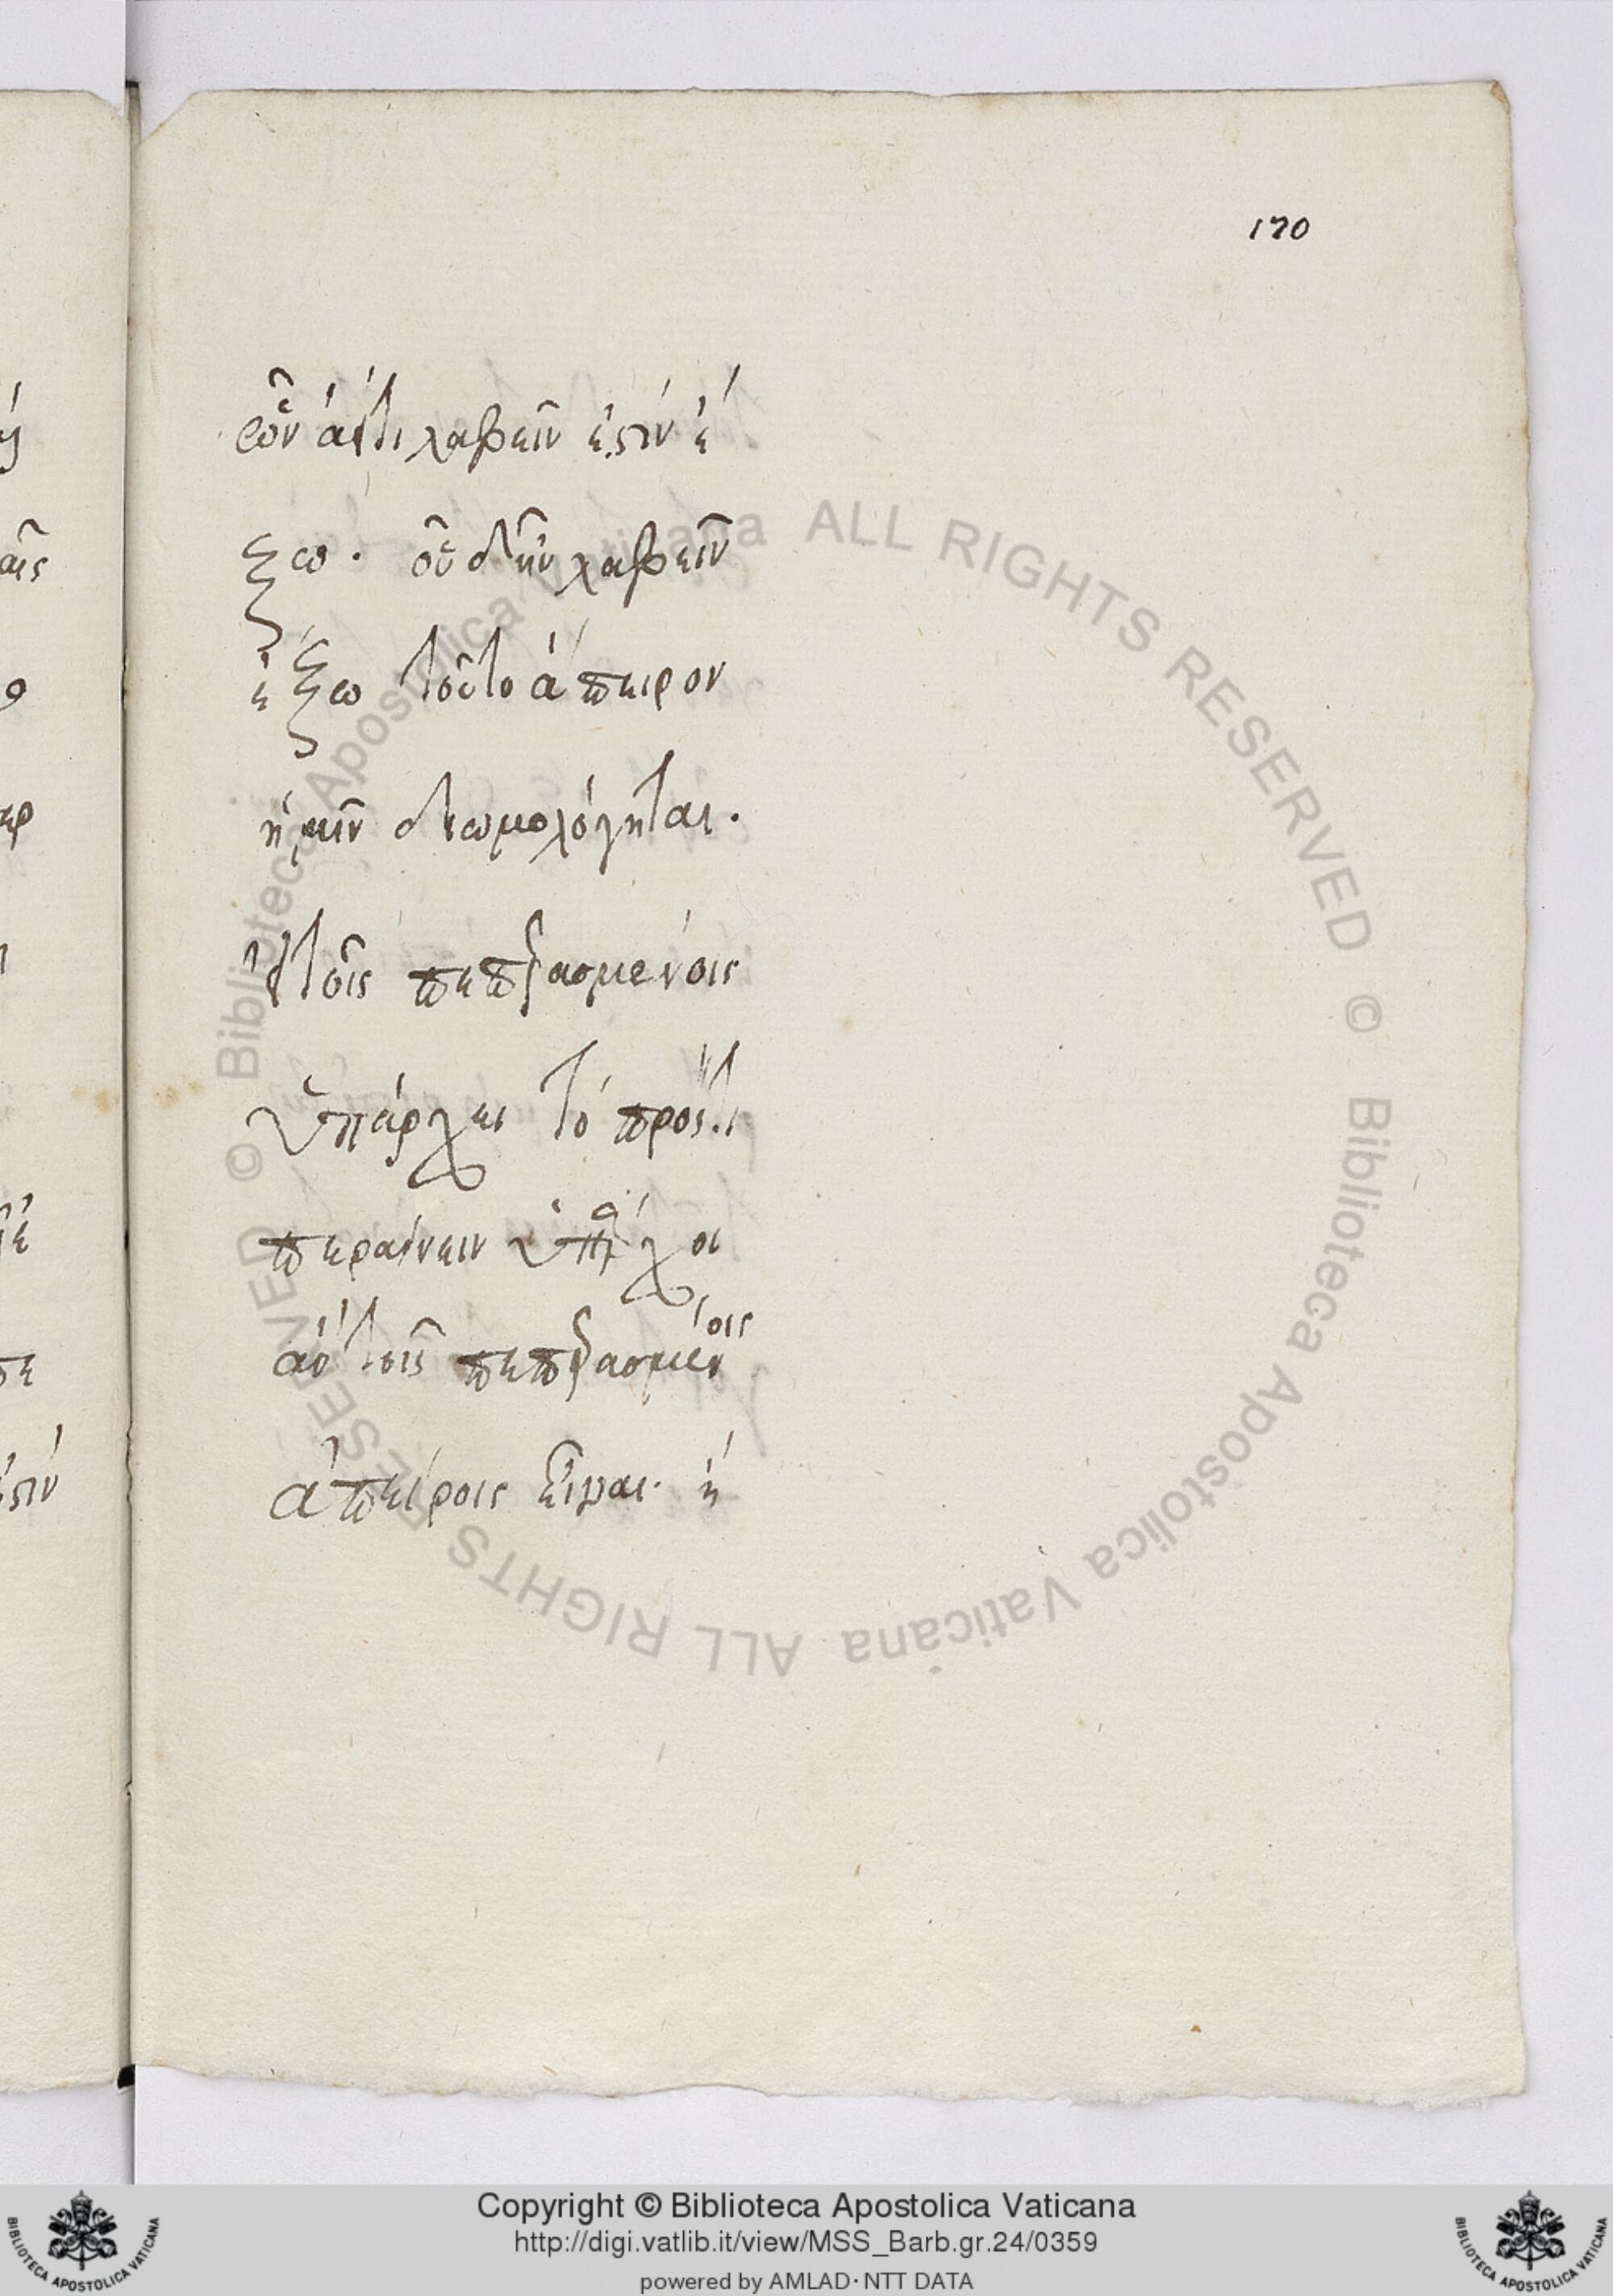 170
ροῦν ἀεί τι λαβεῖν ἐστὶν ἔ
ξω. οὗ δ' ἦν λαβεῖν
ἔξω τοῦτο ἄπειρον
ἡμῖν διωμολόγηται.
τοῖς πεπερασμένοις
ὑπάρχει τό πρός τι
περαίνειν ὑπάρχοι
αὐτοῖς πεπερασμένοις
ἀπείροις εἶναι. ἡ
© Biblioteca Apostolica Vaticana ALL RIGHTS RESERVED © Biblioteca Apostolica Vaticana ALL RIGHTS RESERVED
Copyright © Biblioteca Apostolica Vaticana
http://digi.vatlib.it/view/MSS_Barb.gr.24/0359
powered by AMLAD · NTT DATA
BIBLIOTECA APOSTOLICA VATICANA
BIBLIOTECA APOSTOLICA VATICANA